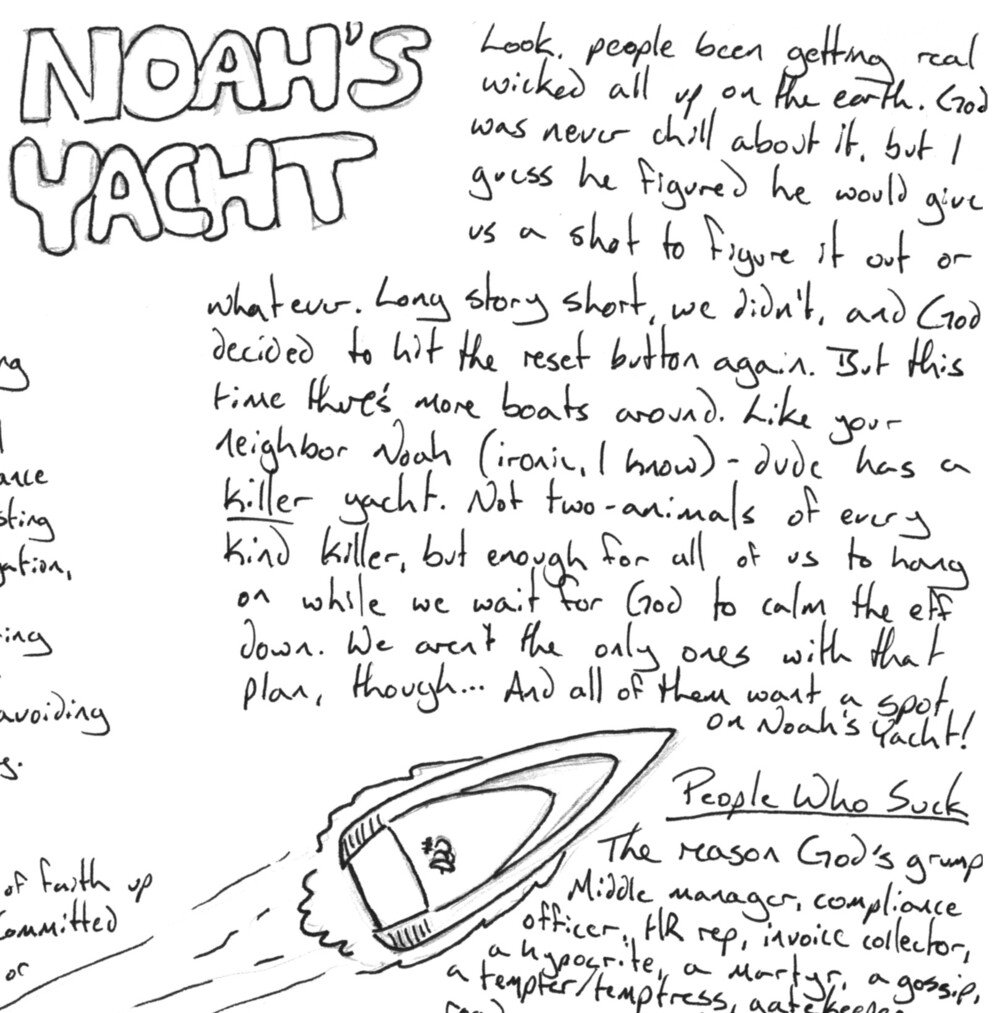 NOAH'S
YACHT
Look, people been getting real
wicked all up on the earth. God
was never chill about it, but I
guess he figured he would give
us a shot to figure it out or
whatever. Long story short, we didn't, and God
decided to hit the reset button again. But this
time there's more boats around. Like your
neighbor Noah (ironic, I know) - dude has a
killer yacht. Not two-animals of every
kind killer, but enough for all of us to hang
on while we wait for God to calm the eff
down. We aren't the only ones with that
plan, though... And all of them want a spot
on Noah's Yacht!
People Who Suck
The reason God's grump
Middle manager, compliance
officer, HR rep, invoice collector,
a hypocrite, a martyr, a gossip,
a tempter/temptress, gatekeeper
ng
ance
sting
gation,
ing
avoiding
s.
of faith up
committed
or